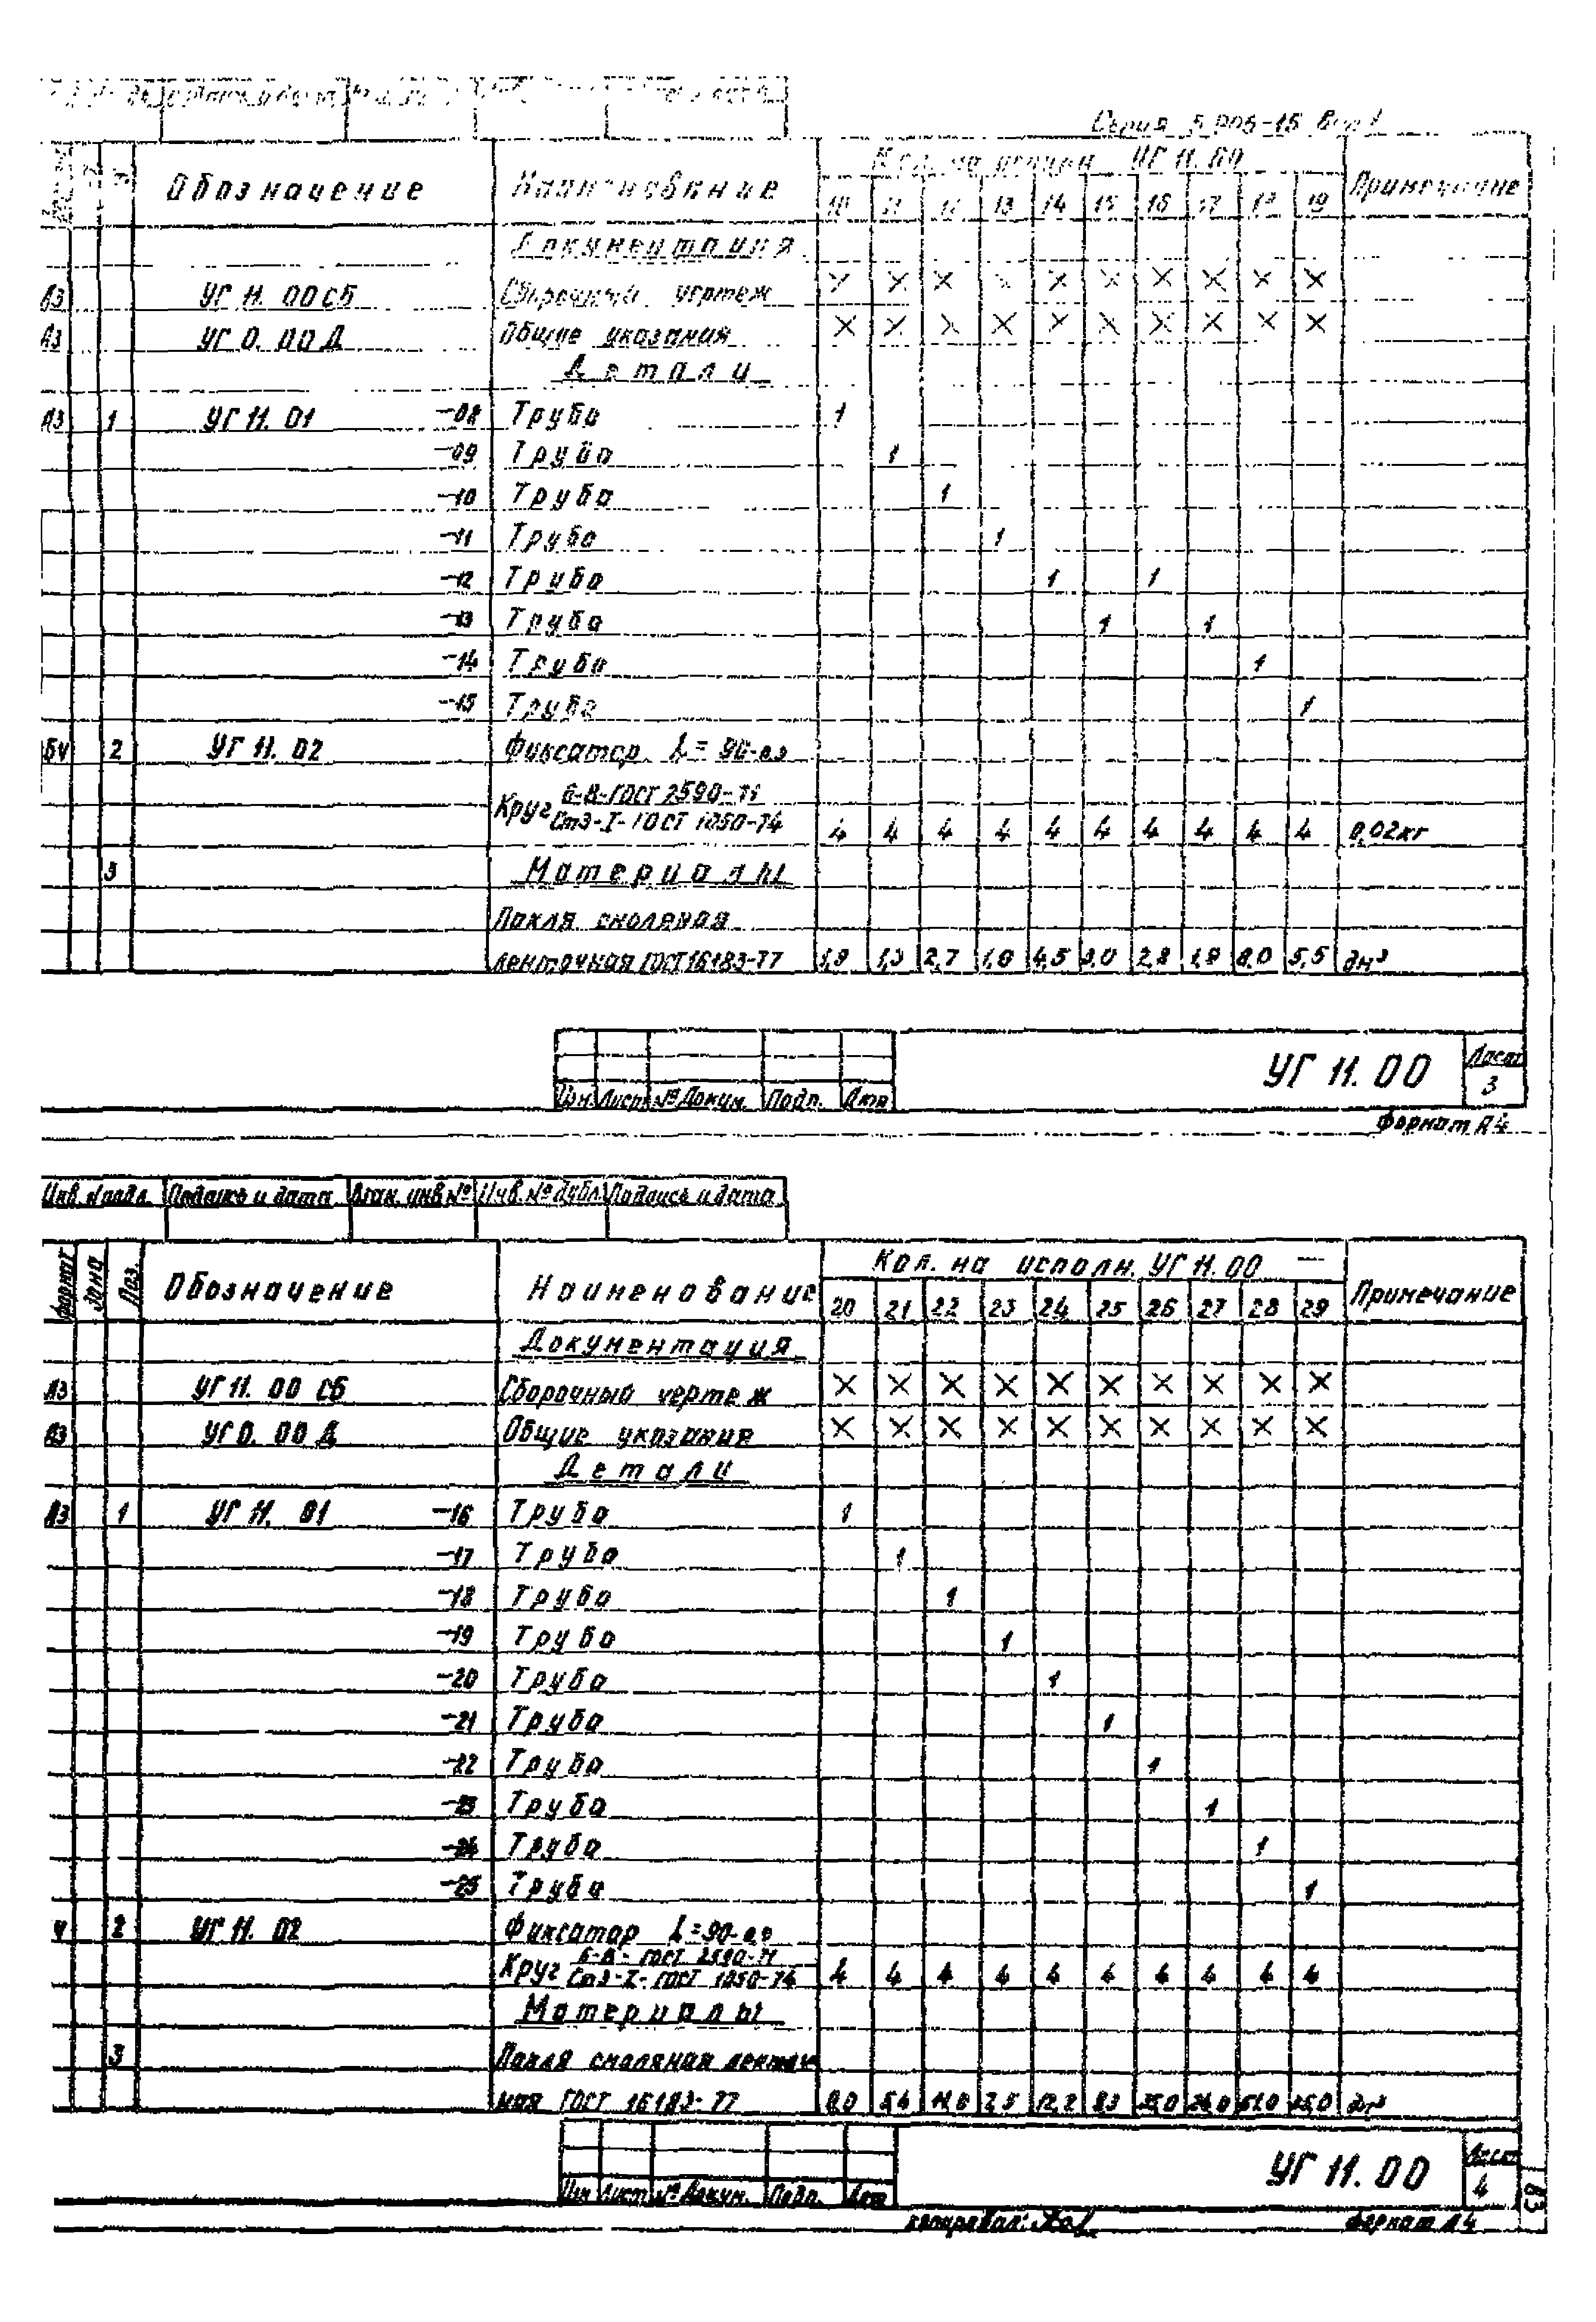 Серия 5.905-15 Вып 1
Обозначение Наименование Кол. на исполн. УГ 11.00 Примечание
10 11 12 13 14 15 16 17 18 19
Документация
А3 УГ 11. 00 СБ Сборочный чертеж × × × × × × × × × ×
А3 УГ 0. 00 Д Общие указания × × × × × × × × × ×
Детали
А3 1 УГ 11. 01 -08 Труба 1
-09 Труба 1
-10 Труба 1
-11 Труба 1
-12 Труба 1 1
-13 Труба 1 1
-14 Труба 1
-15 Труба 1
БЧ 2 УГ 11. 02 Фиксатор L=90-
Круг 6-В-ГОСТ 2590-71
Ст3-I-ГОСТ 1050-74 4 4 4 4 4 4 4 4 4 4 0,02кг
3 Материалы
Пакля смоляная
ленточная ГОСТ 16183-77 1,9 1,3 2,7 4,5 2,8 1,9 8,0 5,5 дм³
Изм. Лист № Докум. Подп. Дата УГ 11.00 Лист
3
Формат А4
Инв. № подл. Подпись и дата Взам. инв № Инв. № дубл. Подпись и дата
Формат Зона Поз. Обозначение Наименование Кол. на исполн. УГ 11.00 — Примечание
20 21 22 23 24 25 26 27 28 29
Документация
А3 УГ 11. 00 СБ Сборочный чертеж × × × × × × × × × ×
А3 УГ 0. 00 Д Общие указания × × × × × × × × × ×
Детали
А3 1 УГ 11. 01 -16 Труба 1
-17 Труба 1
-18 Труба 1
-19 Труба 1
-20 Труба 1
-21 Труба 1
-22 Труба 1
-23 Труба 1
-24 Труба 1
-25 Труба 1
Ч 2 УГ 11. 02 Фиксатор L=90-
Круг 6-В-ГОСТ 2590-71
Ст3-I-ГОСТ 1050-74 4 4 4 4 4 4 4 4 4 4
Материалы
3 Пакля смоляная ленточ
ная ГОСТ 16183-77 8,0 5,4 11,0 7,5 12,2 8,3 дм³
Изм Лист № Докум. Подп. Дата УГ 11.00 Лист
4
83
Копировал: Формат А4